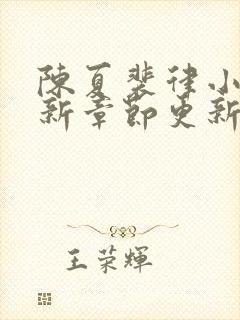 陳夏裴律小
新章節更新
王荣輝